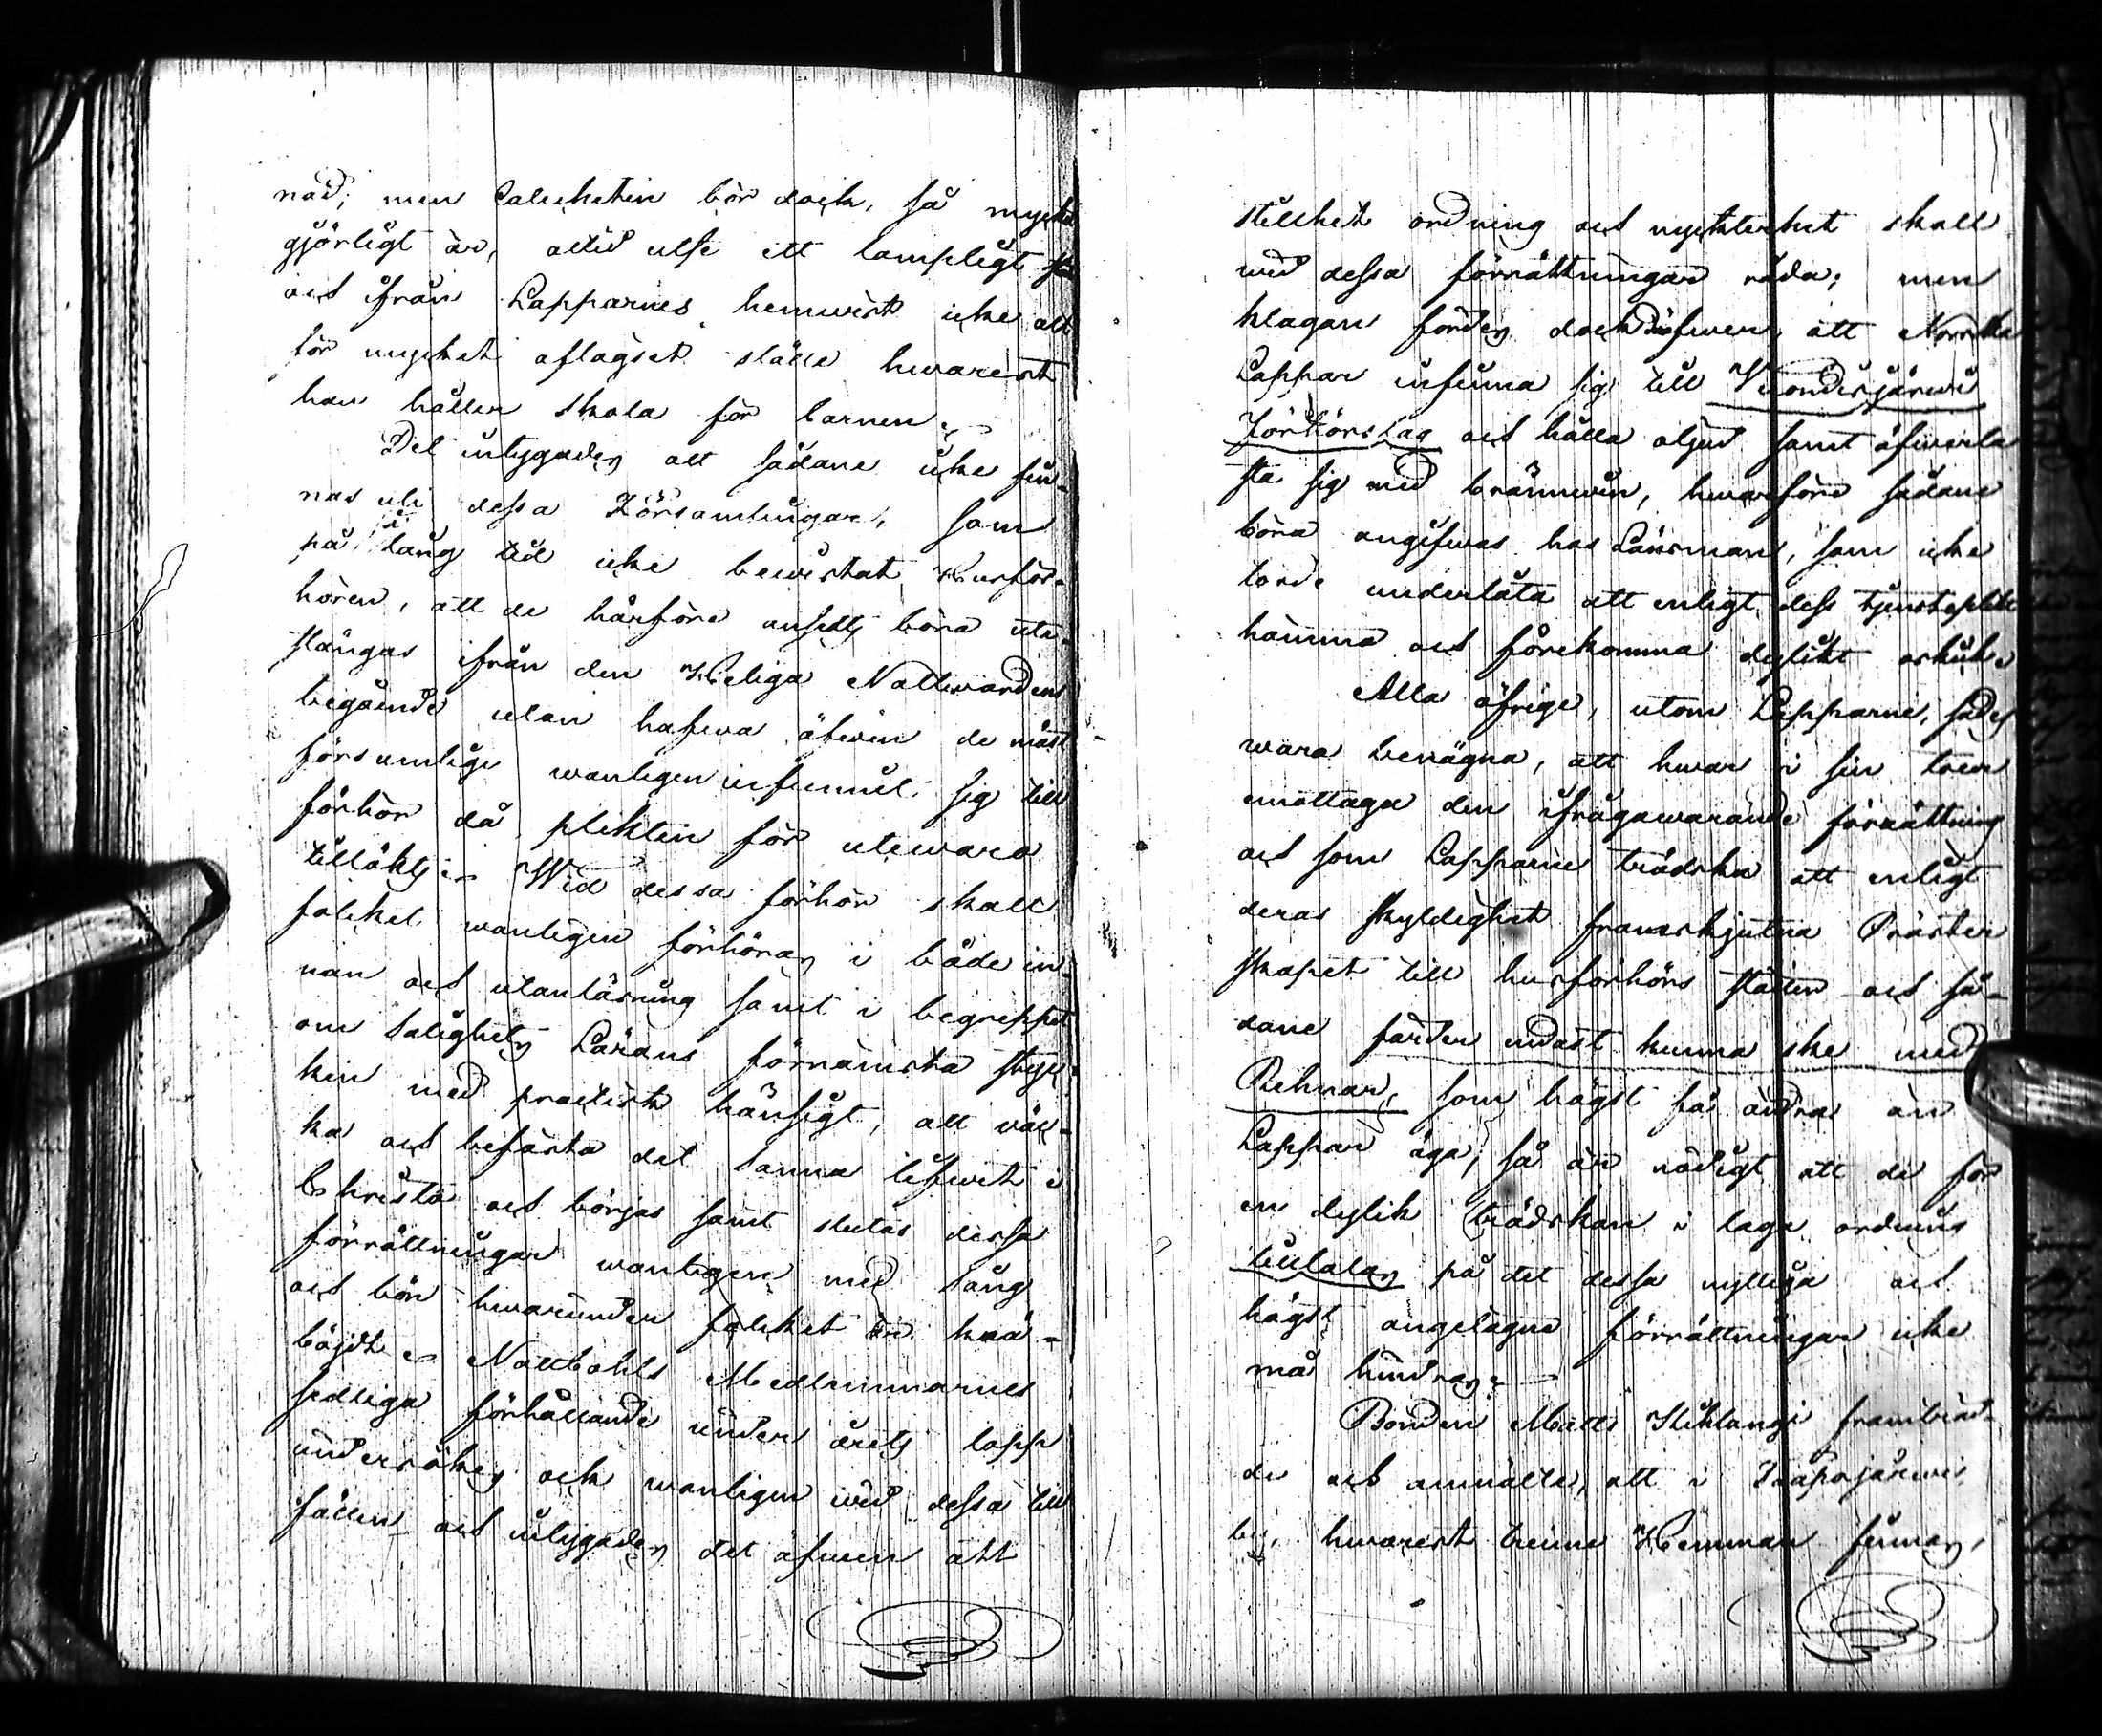 nåd; men Catecheten bör dock, så mycket
gjörligt är, altid utse ett lämpligt
och ifrån Lapparnes hemwist icke allt
för mycket aflägset ställe hwarest
han håller skola för barnen.
Det intygades att sådane icke fin-
nas uti dessa Församlingar, som
på lång tid icke bewistat Husför-
hören, att de härföre ansetts böra ute-
stängas ifrån den Heliga Nattwardens
begående utan hafwa äfwen de mäst
försumlige wanligen infunnit sig till
förhör då plikten för utewaro
tillökts. Wid dessa förhör skall
folcket wanligen förhöras i både in-
nan och utanläsning samt i begreppet
om Salighets Lärans förnämsta styc-
ken med practisk hänsigt, att wäc-
ka och befästa det sanna lifwet i
Christo och börjas samt slutas dessa
förrättningar wanligen med sång
och bön hwarunder folcket är knä-
böjdt. Nattbohls Medlemmarnes
sedliga förhållande under årets lopp
undersökes ock wanligen wid dessa till
fällen och intygades det äfwen att
stillhet ordning och nyckterhet skall
wid dessa förrättningar råda; men
klagan fördes dock äfwen att Norrska
Lappar infinna sig till Wuondisjärwi
Förhörslag och hålla oljud samt öfwerla
sta sig med brännwin, hwarföre sådane
böra angifwas hos Länsman, som icke
torde underlåta att enligt dess tjenstepligt
hämma och förekomma dylikt oskick.
Alla öfrige, utom Lapparne, sades
wara benägna, att hwar i sin tour
emottaga den ifrågawarande förrättning
och som Lapparne tredska att enligt
deras skyldighet framskjutsa Präster
skapet till husförhörs ställen och så-
dane färder endast kunna ske med
Rehnar, som högst få andra än
Lappar äga; så är nödigt att de för
en dylik tredskan i laga ordning
tilltalas på det dessa nyttiga och
högst angelägne förrättningar icke
må hindras.
Bonden Matts framträd-
de och anmälte, att i Jaapajärwi
by, hwarest tvenne Hemman finnas,